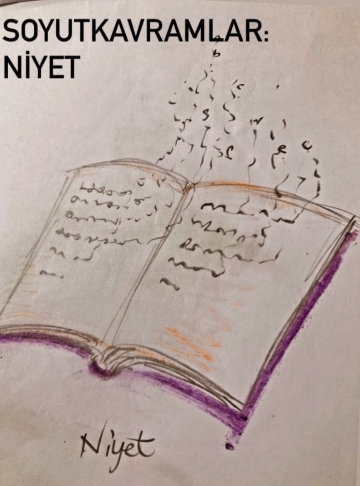 SOYUTKAVRAMLAR:
NİYET
Niyet